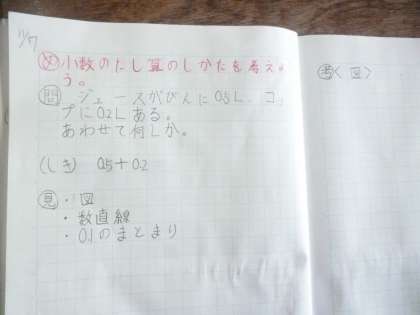 11/7
め 小数のたし算のしかたを考えよ
う。
問 ジュースがびんに0.5L、コッ
プに0.2Lある。
あわせて何Lか。
(しき) 0.5+0.2
見 ・図
・数直線
・0.1のまとまり
考 〈図〉